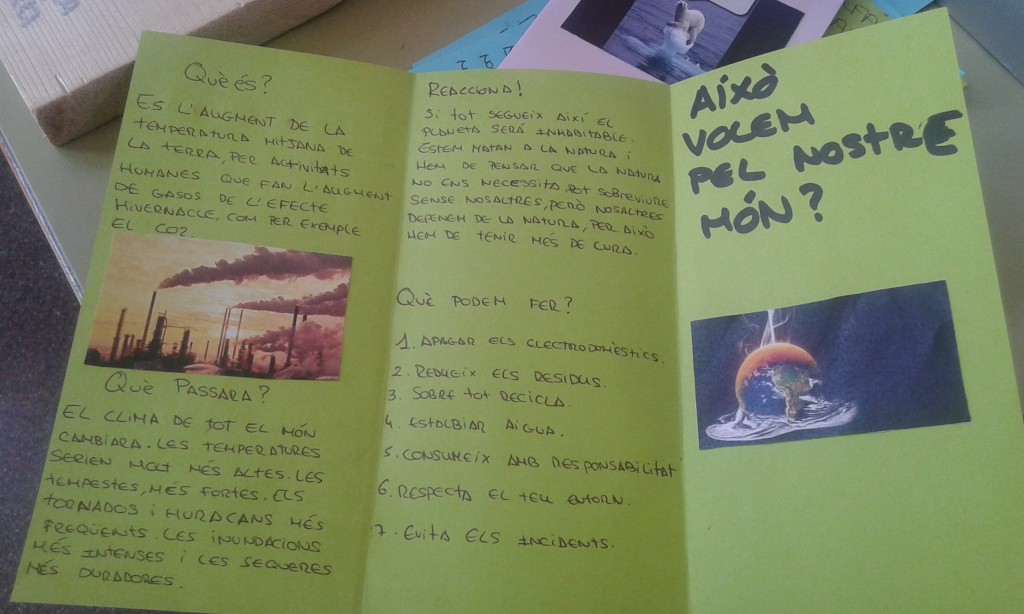 Què és?
ES L'AUGMENT DE LA
TEMPERATURA MITJANA DE
LA TERRA, PER ACTIVITATS
HUMANES QUE FAN L'AUGMENT
DE GASOS DE L'EFECTE
HIVERNACLE, COM PER EXEMPLE
EL CO2.
Què PASSARA?
EL CLIMA DE TOT EL MÓN
CAMBIARA. LES TEMPERATURES
SERIEN MOLT MÉS ALTES. LES
TEMPESTES, MÉS FORTES. ELS
TORNADOS I HURACANS MÉS
FREQÜENTS. LES INUNDACIONS
MÉS INTENSES I LES SEQUERES
MÉS DURADORES.
REACCIONA!
SI TOT SEGUEIX AIXÍ EL
PLANETA SERÁ INHABITABLE.
ESTEM MATAN A LA NATURA I
HEM DE PENSAR QUE LA NATURA
NO ENS NECESSITA. POT SOBREVIURE
SENSE NOSALTRES, PERÒ NOSALTRES
DEPENEM DE LA NATURA, PER AIXÒ
HEM DE TENIR MÉS DE CURA.
QUÈ PODEM FER?
1. APAGAR ELS ELECTRODOMÈSTICS.
2. REDUEIX ELS RESIDUS.
3. SOBRE TOT RECICLA.
4. ESTALBIAR AIGUA.
5. CONSUMEIX AMB RESPONSABILITAT
6. RESPECTA EL TEU ENTORN.
7. EVITA ELS INCIDENTS.
AIXÒ
VOLEM
PEL NOSTRE
MÓN?